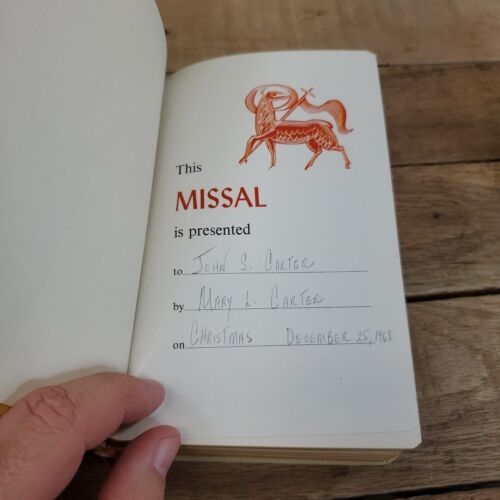 This
MISSAL
is presented
to John S. Carter
by Mary L. Carter
on Christmas December 25, 1968